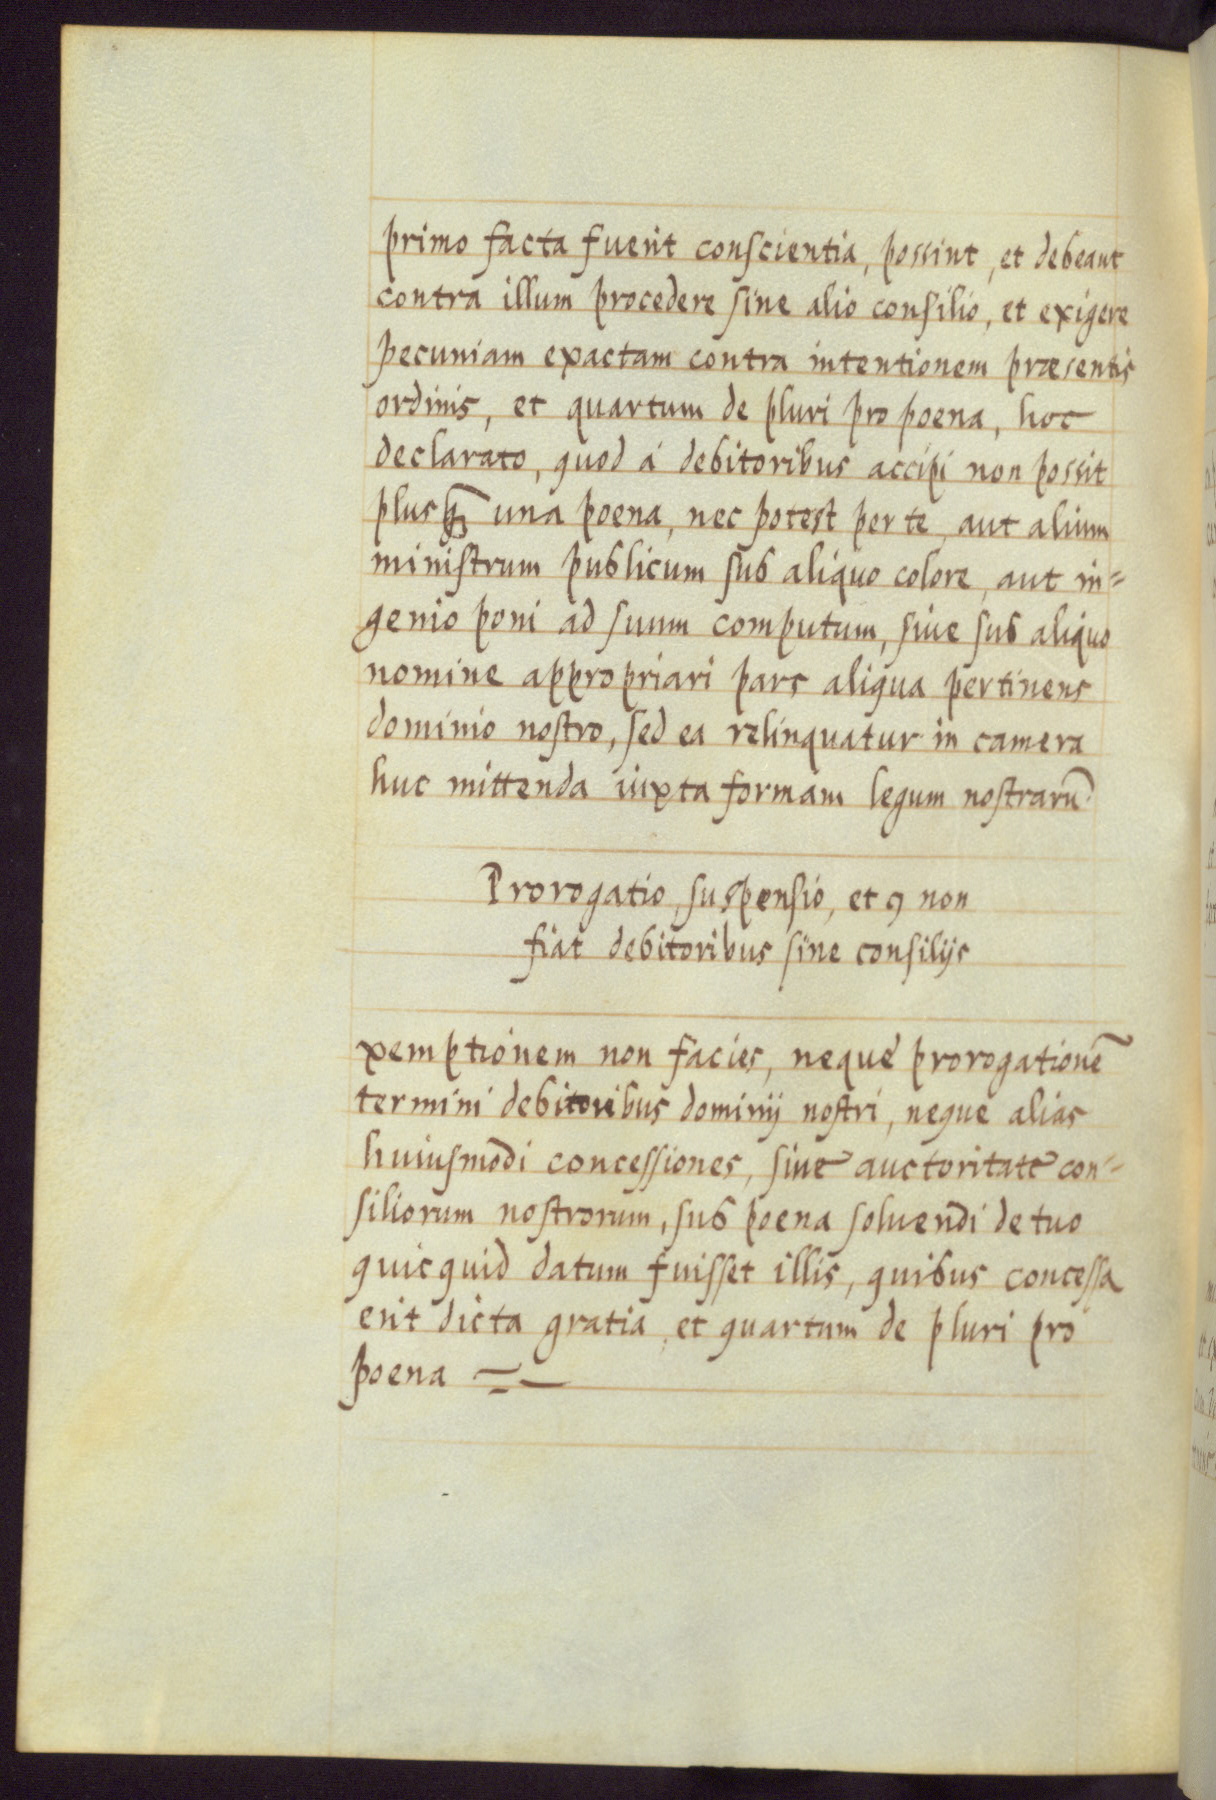 primo facta fuerit conscientia, possint, et debeant
contra illum procedere sine alio consilio, et exigere
pecuniam exactam contra intentionem præsentis
ordinis, et quartum de pluri pro poena, hoc
declarato, quod á debitoribus accipi non possit
plusq̃ una poena, nec potest per te, aut alium
ministrum publicum sub aliquo colore, aut in=
genio poni ad suum computum, siue sub aliquo
nomine appropriari pars aliqua pertinens
dominio nostro, sed ea relinquatur in camera
huc mittenda iuxta formam legum nostrarũ.
Prorogatio, suspensio, et ꝯ non
fiat debitoribus sine consilijs
xemptionem non facies, neque prorogationẽ
termini debitoribus dominij nostri, neque alias
huiusmodi concessiones, siue auctoritate con=
siliorum nostrorum, sub poena soluendi de tuo
quicquid datum fuisset illis, quibus concessa
erit dicta gratia, et quartum de pluri pro
poena